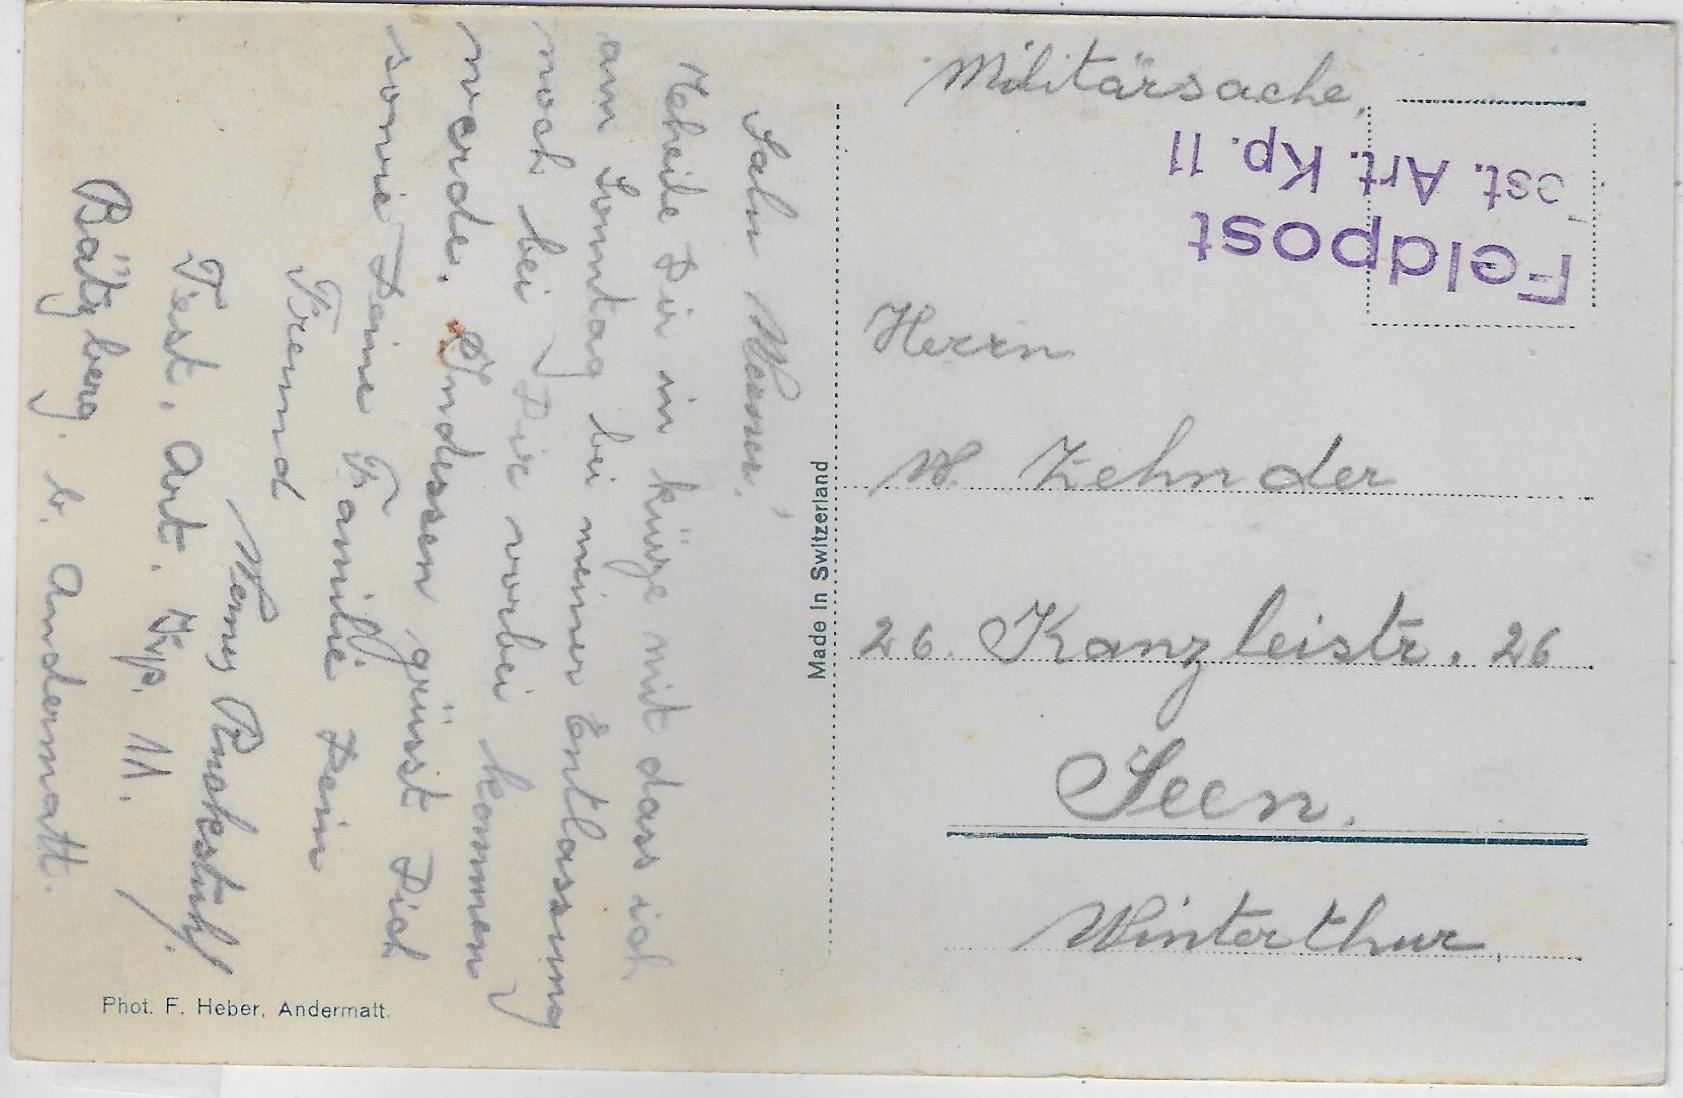 Militärsache,
Feldpost
Fest. Art. Kp. 11
Herrn
W. Zehnder
26. Kanzleistr. 26
Seen.
Winterthur
Made in Switzerland
Salu Werner,
Theile Dir in kürze mit dass ich
am Sonntag bei meiner Entlassung
noch bei Dir vorbei kommen
werde. Indessen grüsst Dich
sowie Deine Familie Dein
Freund
Werny
Fest. Art. Kp. 11.
Bätzberg. b. Andermatt.
Phot. F. Heber, Andermatt.